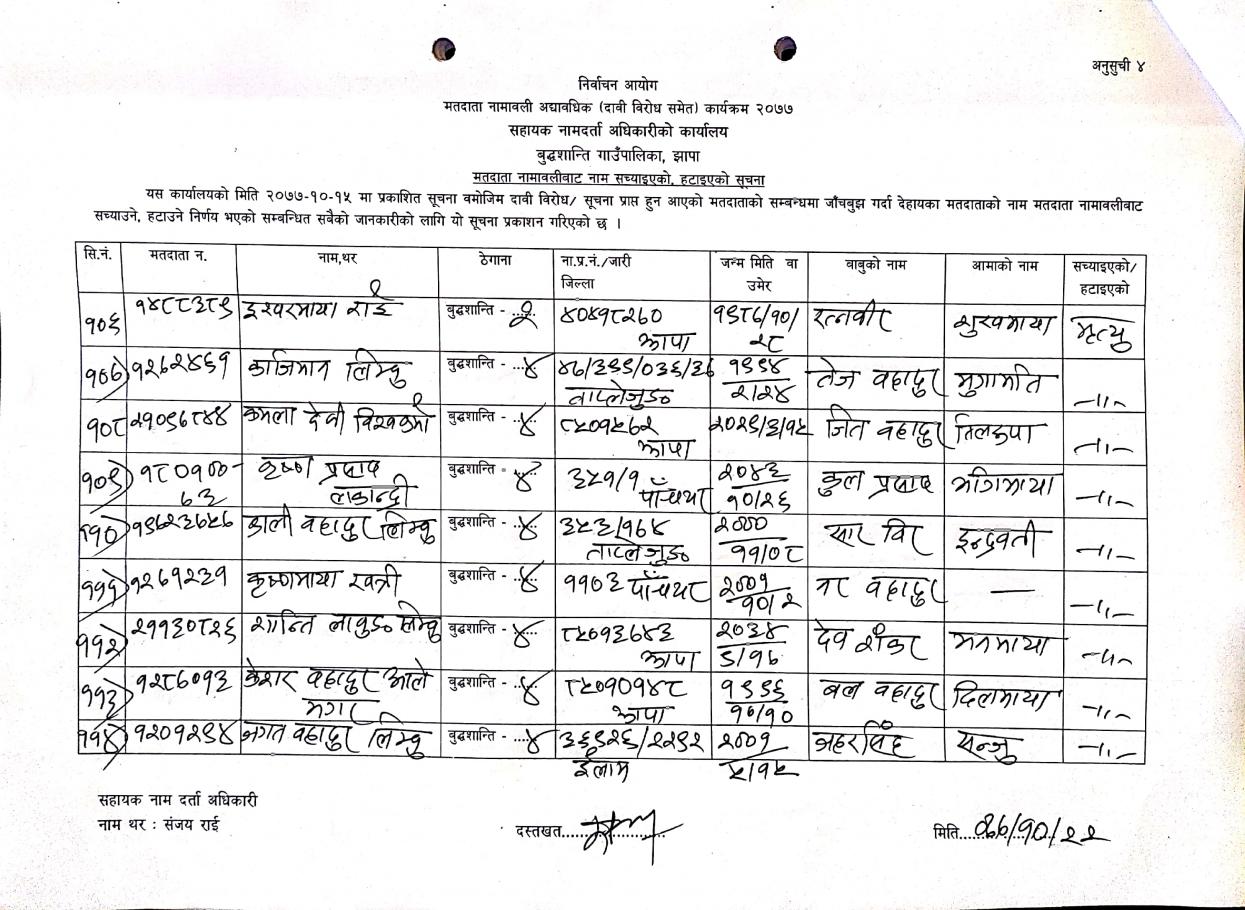 अनुसुची ४
निर्वाचन आयोग
मतदाता नामावली अद्यावधिक (दावी विरोध समेत) कार्यक्रम २०७७
सहायक नामदर्ता अधिकारीको कार्यालय
बुद्धशान्ति गाउँपालिका, झापा
मतदाता नामावलीबाट नाम सच्याइएको, हटाइएको सूचना
यस कार्यालयको मिति २०७७-१०-१५ मा प्रकाशित सूचना बमोजिम दावी विरोध/ सूचना प्राप्त हुन आएको मतदाताको सम्बन्धमा जाँचबुझ गर्दा देहायका मतदाताको नाम मतदाता नामावलीबाट
सच्याउने, हटाउने निर्णय भएको सम्बन्धित सबैको जानकारीको लागि यो सूचना प्रकाशन गरिएको छ ।
सि.नं. मतदाता न. नाम,थर ठेगाना ना.प्र.नं./जारी जन्म मिति वा बाबुको नाम आमाको नाम सच्याइएको/
जिल्ला उमेर हटाइएको
१०६ १४८८३८९ इश्वरमाया राई बुद्धशान्ति - २ ४०४१८२६० १९८६/१०/ रत्नवीर शुखमाया मृत्यु
झापा २८
१०७ १२६२४६१ काजिमान लिम्बु बुद्धशान्ति - ४ ४७/३९९/०३६/३७ १९९४ तेज वहादुर मुगामति -॥-
ताप्लेजुङ २/२४
१०८ २१०९७८४४ कमला देवी विश्वकर्मा बुद्धशान्ति - ४ ८५०१५६२ २०२९/३/१५ जित वहादुर तिलरुपा -॥-
झापा
१०९ १८०१०० कृष्ण प्रसाद बुद्धशान्ति - ४ ३५१/१ २०४३ कुल प्रसाद मगिमाया -॥-
७३ लाकान्द्री पाँचथर १०/२६
११० १९६२३७५७ काली वहादुर लिम्बु बुद्धशान्ति - ४ ३५३/१६४ २००० सार विर इन्द्रवती -॥-
ताप्लेजुङ ११/०८
१११ १२६१२३१ कृष्णमाया खत्री बुद्धशान्ति - ४ ११०३ पाँचथर २००१ नर वहादुर — -॥-
१०/२
११२ २११३०८२६ शान्ति लावुङ लिम्बु बुद्धशान्ति - ४ ८५०१३६४३ २०३४ देव शंकर मनमाया -॥-
झापा ९/१७
११३ १२८७०१३ केशर वहादुर आले बुद्धशान्ति - ४ ८५०१०१४८ १९९६ वल वहादुर दिलमाया -॥-
मगर झापा ११/१०
११४ १२०१२९४ भगत वहादुर लिम्बु बुद्धशान्ति - ४ ३६९२६/२२९२ २००१ जहरसिंह सन्जु -॥-
ईलाम ५/१५
सहायक नाम दर्ता अधिकारी
नाम थर : संजय राई
दस्तखत..................
मिति ०७७/१०/२२